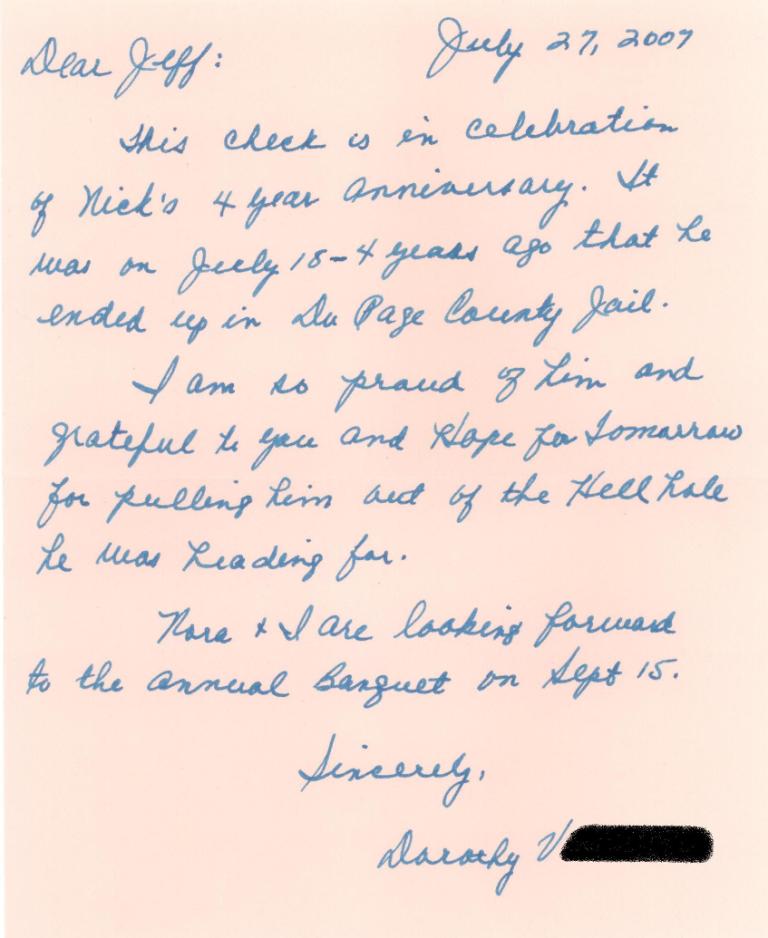 July 27, 2007
Dear Jeff:
This check is in celebration
of Nick's 4 year anniversary. It
was on July 15-4 years ago that he
ended up in Du Page County Jail.
I am so proud of him and
grateful to you and Hope for Tomorrow
for pulling him out of the Hell hole
he was heading for.
Nora + I are looking forward
to the annual Banquet on Sept 15.
Sincerely,
Dorothy V